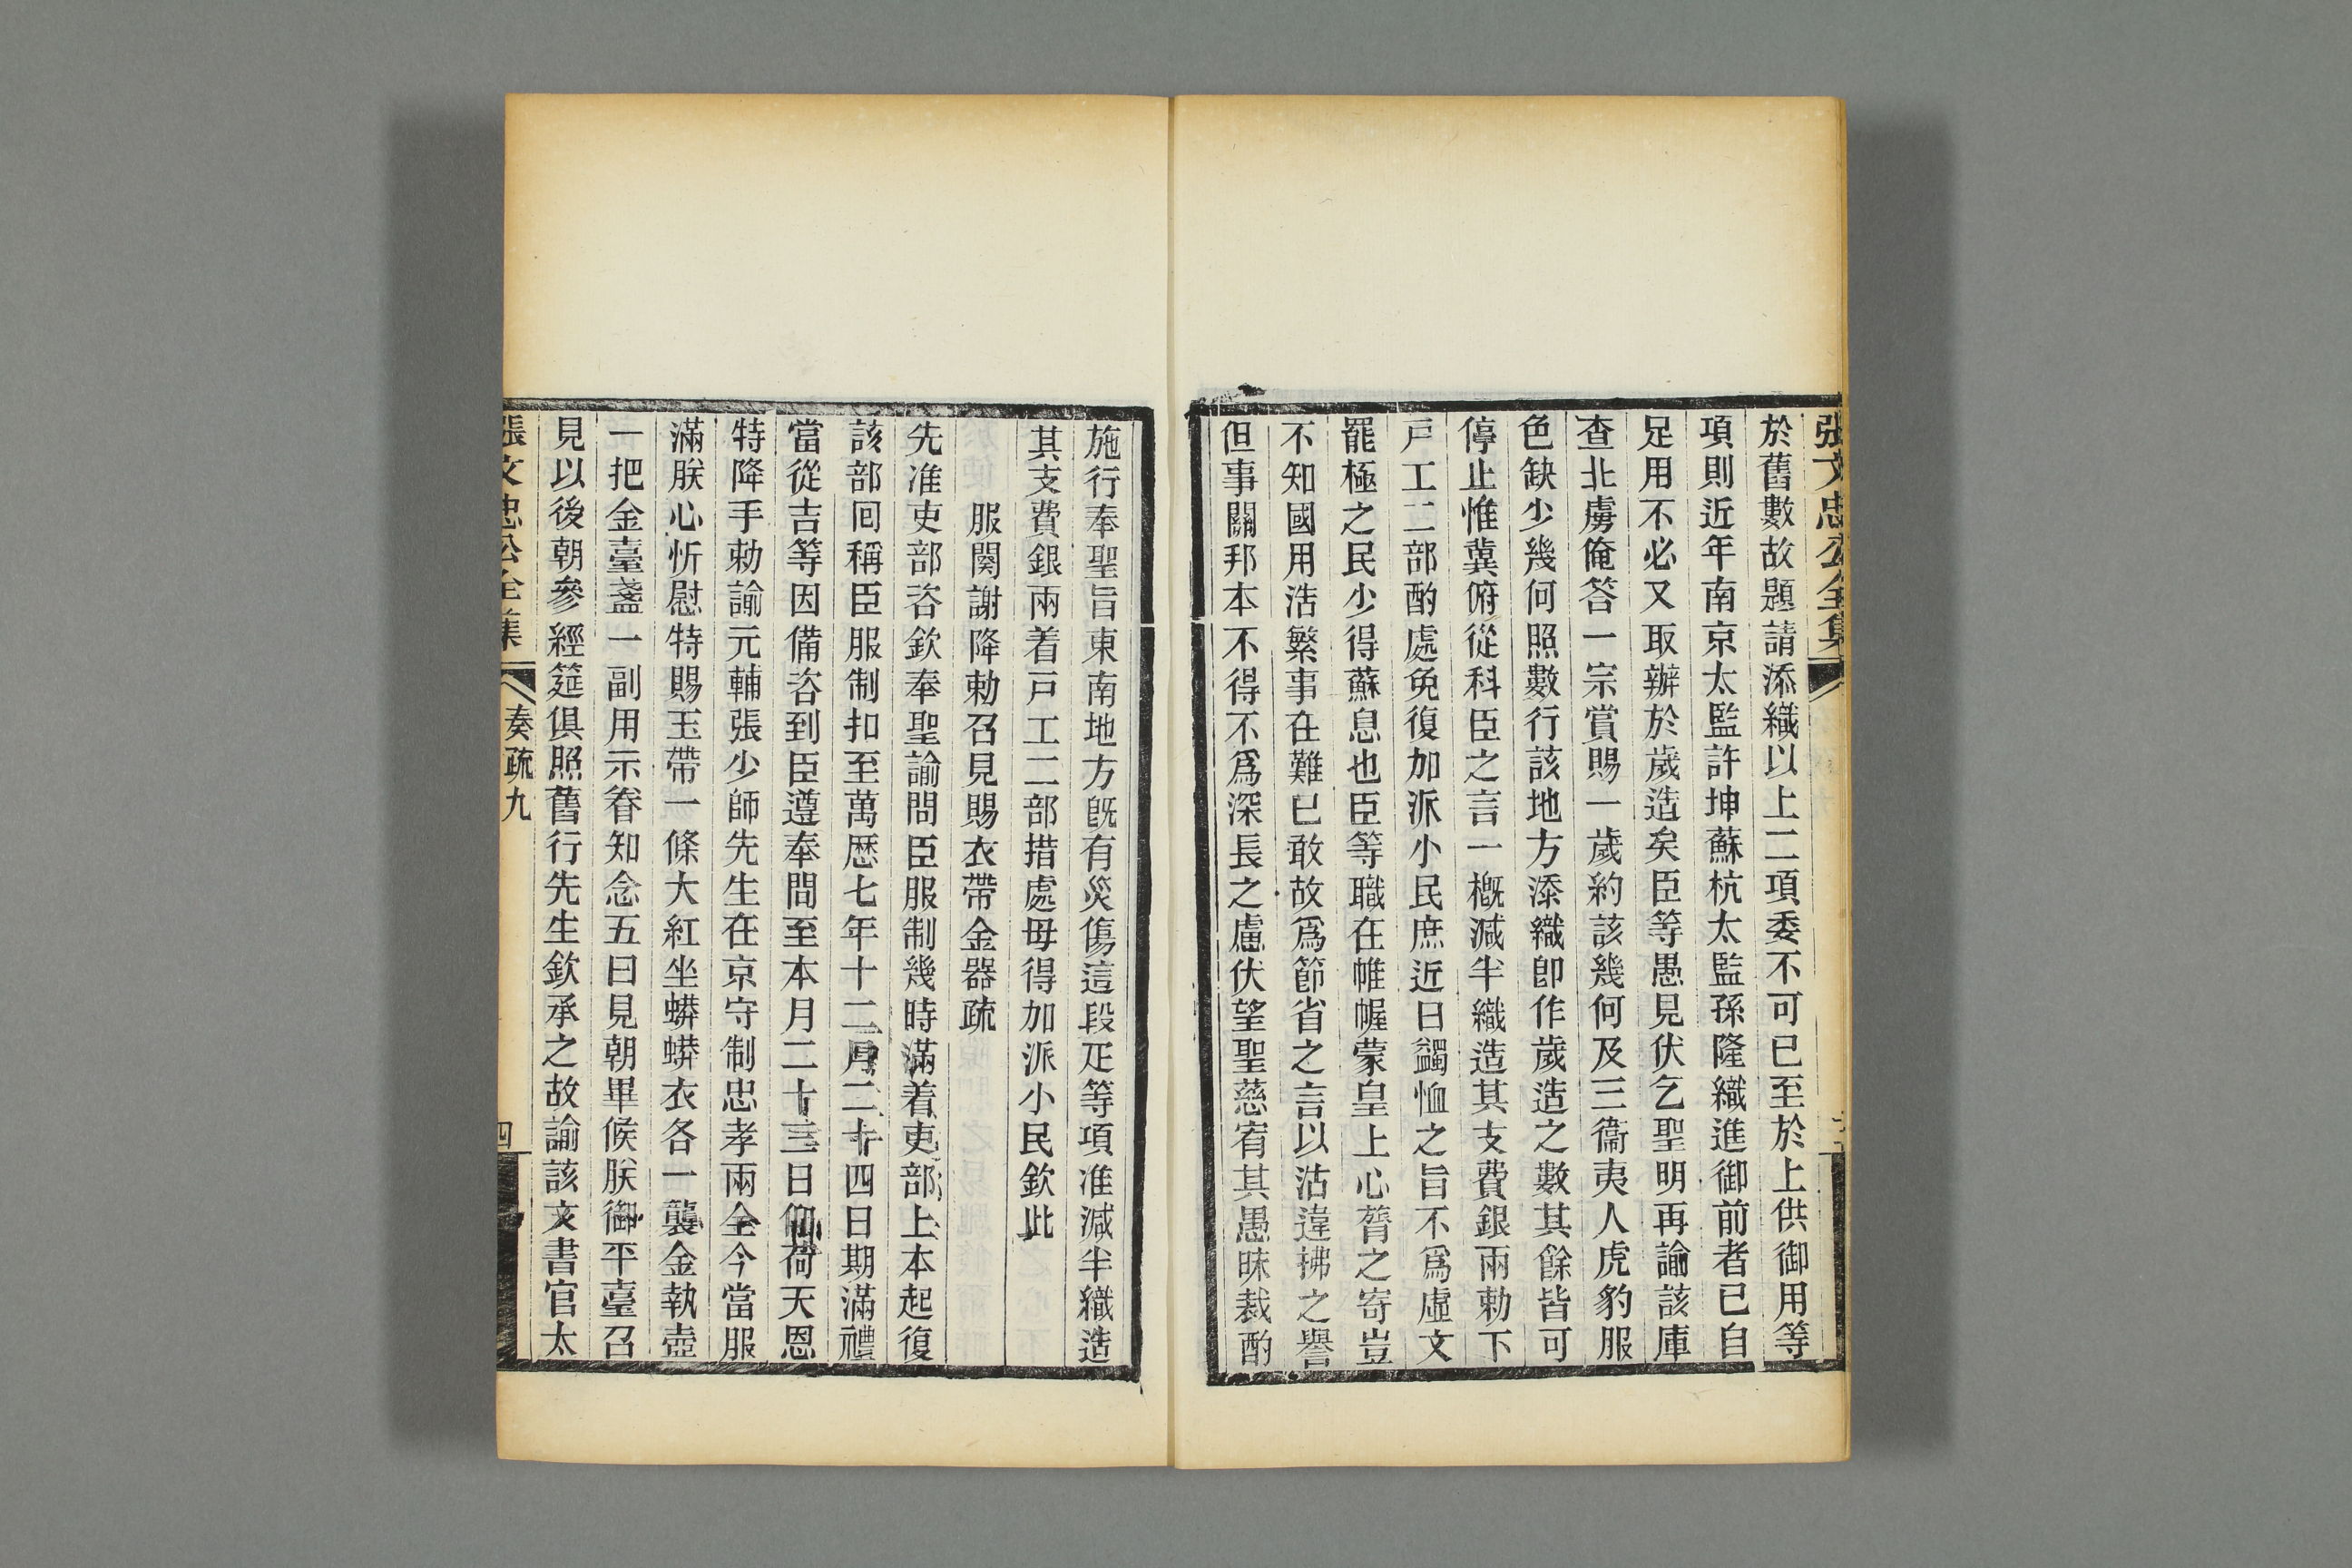 張文忠公全集
於舊數故題請添織以上二項委不可已至於上供御用等
項則近年南京太監許坤蘇杭太監孫隆織進御前者已自
足用不必又取辦於歲造矣臣等愚見伏乞聖明再諭該庫
查北虜俺答一宗賞賜一歲約該幾何及三衞夷人虎豹服
色缺少幾何照數行該地方添織卽作歲造之數其餘皆可
停止惟冀俯從科臣之言一槪減半織造其支費銀兩勅下
戸工二部酌處免復加派小民庶近日蠲恤之旨不爲虛文
罷極之民少得蘇息也臣等職在帷幄蒙皇上心膂之寄豈
不知國用浩繁事在難已敢故爲節省之言以沽違拂之譽
但事關邦本不得不爲深長之慮伏望聖慈宥其愚昧裁酌
施行奉聖旨東南地方旣有災傷這段疋等項准減半織造
其支費銀兩着戸工二部措處毋得加派小民欽此
服闋謝降勅召見賜衣帶金器疏
先准吏部咨欽奉聖諭問臣服制幾時滿着吏部上本起復
該部回稱臣服制扣至萬歷七年十二月二十四日期滿禮
當從吉等因備咨到臣遵奉間至本月二十三日仰荷天恩
特降手勅諭元輔張少師先生在京守制忠孝兩全今當服
滿朕心忻慰特賜玉帶一條大紅坐蟒蟒衣各一襲金執壺
一把金臺盞一副用示眷知念五日見朝畢候朕御平臺召
見以後朝參經筵俱照舊行先生欽承之故諭該文書官太
張文忠公全集 奏疏九 四